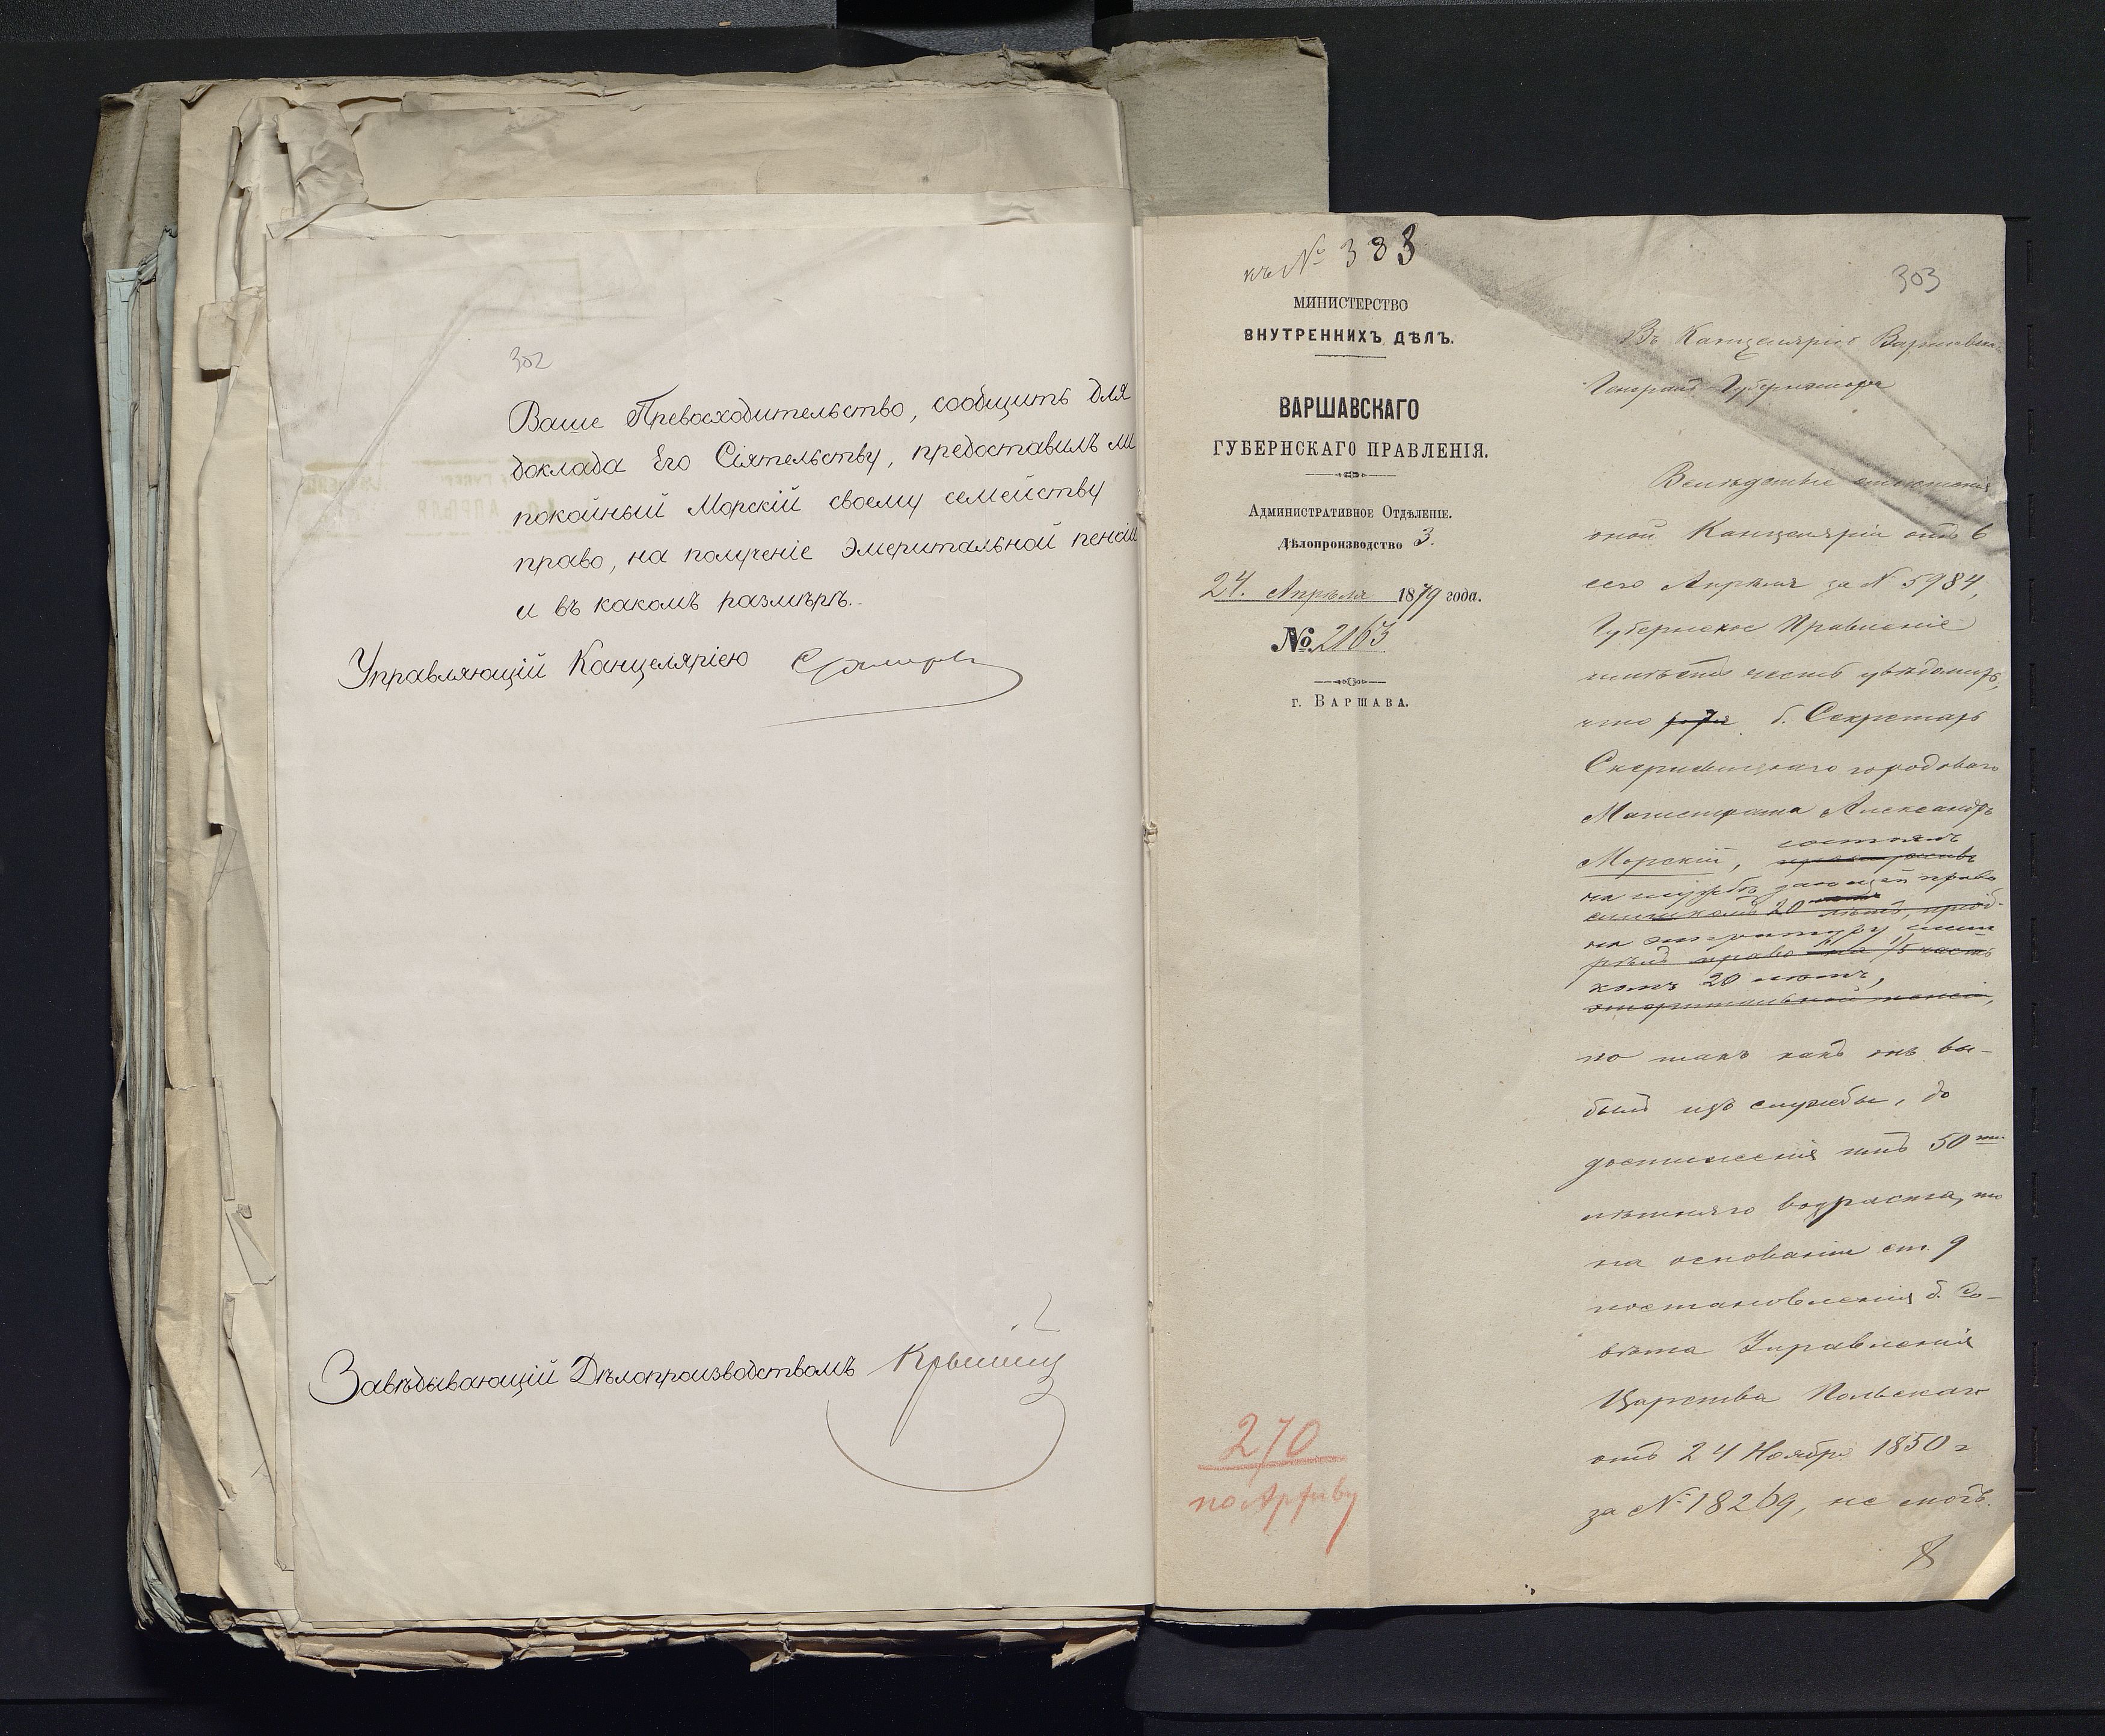 302
Ваше Превосходительство, сообщить для
доклада Его Сіятельству, предоставилъ ли
покойный Морскій своему семейству
право, на полученіе эмеритальной пенсіи
и въ какомъ размѣрѣ.
Управляющій Канцеляріею
Завѣдывающій Дѣлопроизводствомъ
къ № 333
303
МИНИСТЕРСТВО
ВНУТРЕННИХЪ ДѢЛЪ.
ВАРШАВСКАГО
ГУБЕРНСКАГО ПРАВЛЕНІЯ.
Административное Отдѣленіе.
Дѣлопроизводство 3.
24. Апрѣля 1879 года.
№ 2163
г. ВАРШАВА.
270
по Архиву
Въ Канцелярію Варшавска
Генералъ Губернатора
Вслѣдствіе отношенія
оной Канцеляріи отъ 6
сего Апрѣля за № 5984,
Губернское Правленіе
имѣетъ честь увѣдомить,
что б. Секретарь
Скерневицкаго городоваго
Магистрата Александръ
состоялъ
Морскій,
на службѣ дающей право
20 лѣтъ, пріоб-
на эмеритуру слиш
рѣлъ право на 1/5 часть
комъ 20 лѣтъ,
эмеритальной пенсіи,
но такъ какъ онъ вы-
былъ изъ службы, до
достиженія имъ 50 ти
лѣтняго возраста, то
на основаніи ст. 9
постановленія б. Со-
вѣта Управленія
Царства Польскаго
отъ 24 Ноября 1850 г
за № 18269, не могъ